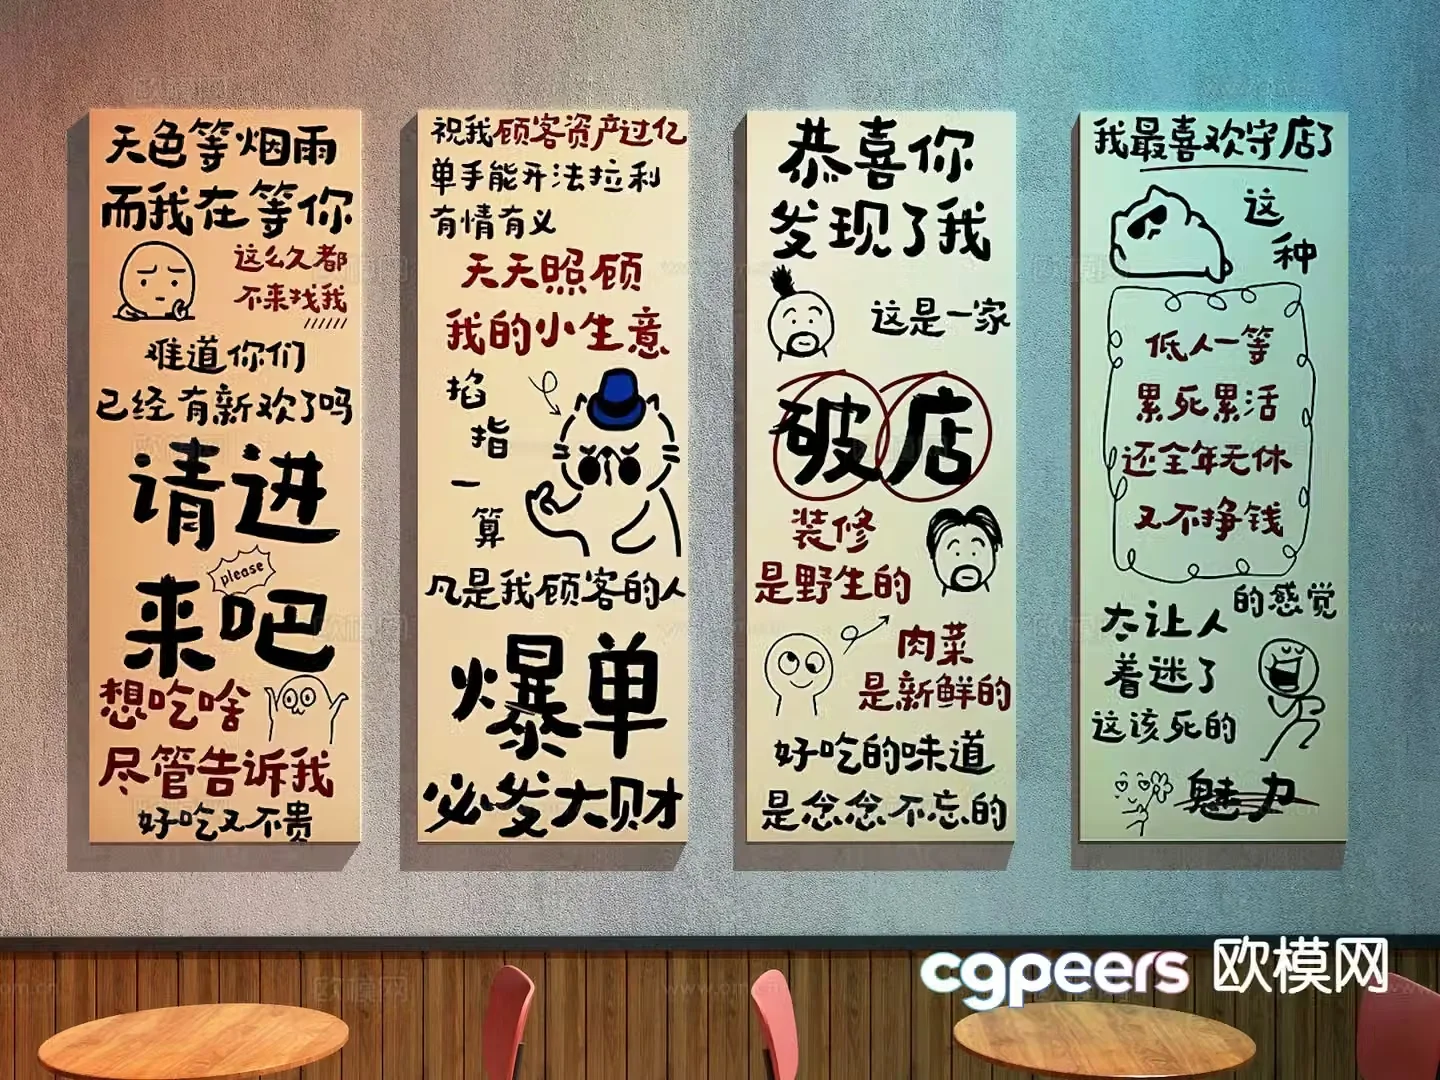 天色等烟雨
而我在等你
这么久都
不来找我
难道你们
已经有新欢了吗
请进
please
来吧
想吃啥
尽管告诉我
好吃又不贵
祝我顾客资产过亿
单手能开法拉利
有情有义
天天照顾
我的小生意
掐
指
一
算
凡是我顾客的人
爆单
必发大财
恭喜你
发现了我
这是一家
破店
装修
是野生的
肉菜
是新鲜的
好吃的味道
是念念不忘的
我最喜欢守店了
这
种
低人一等
累死累活
还全年无休
又不挣钱
的感觉
太让人
着迷了
这该死的
魅力
cgpeers 欧模网